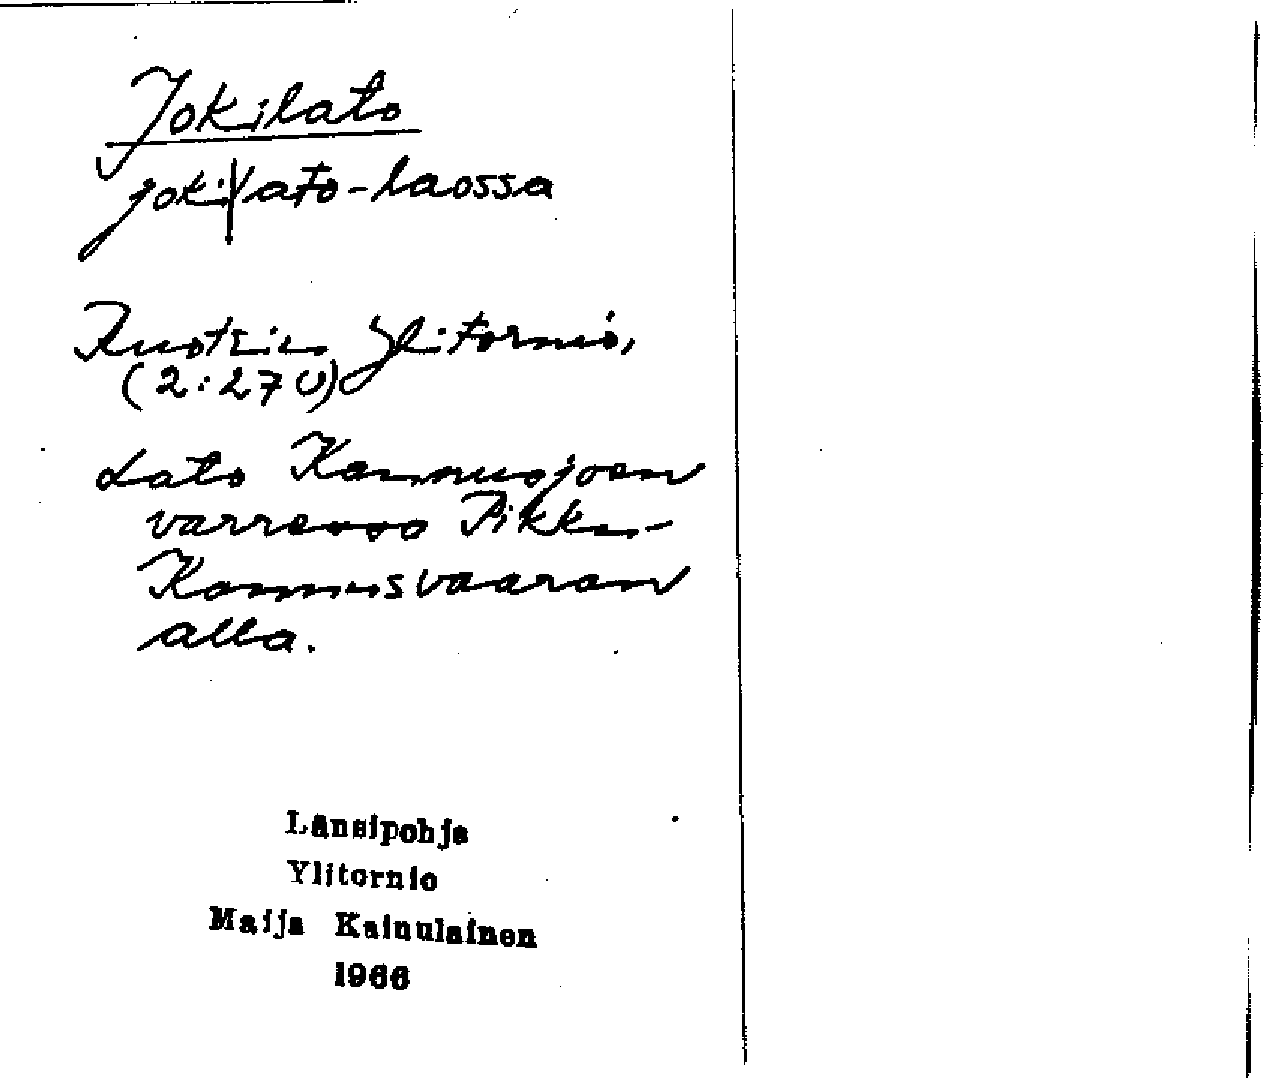 Jokilato
joki|lato-laossa
Ruotsin Ylitornio,
(2:27 U)
Lato Kannusjoen
varressa Pikku-
Kannusvaaran
alla.
Länsipohja
Ylitornio
Maija Kainulainen
1966